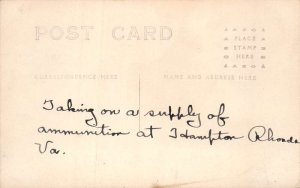 POST CARD
PLACE
STAMP
HERE
CORRESPONDENCE HERE
NAME AND ADDRESS HERE
Taking on a supply of
ammunition at Hampton Rhoads
Va.